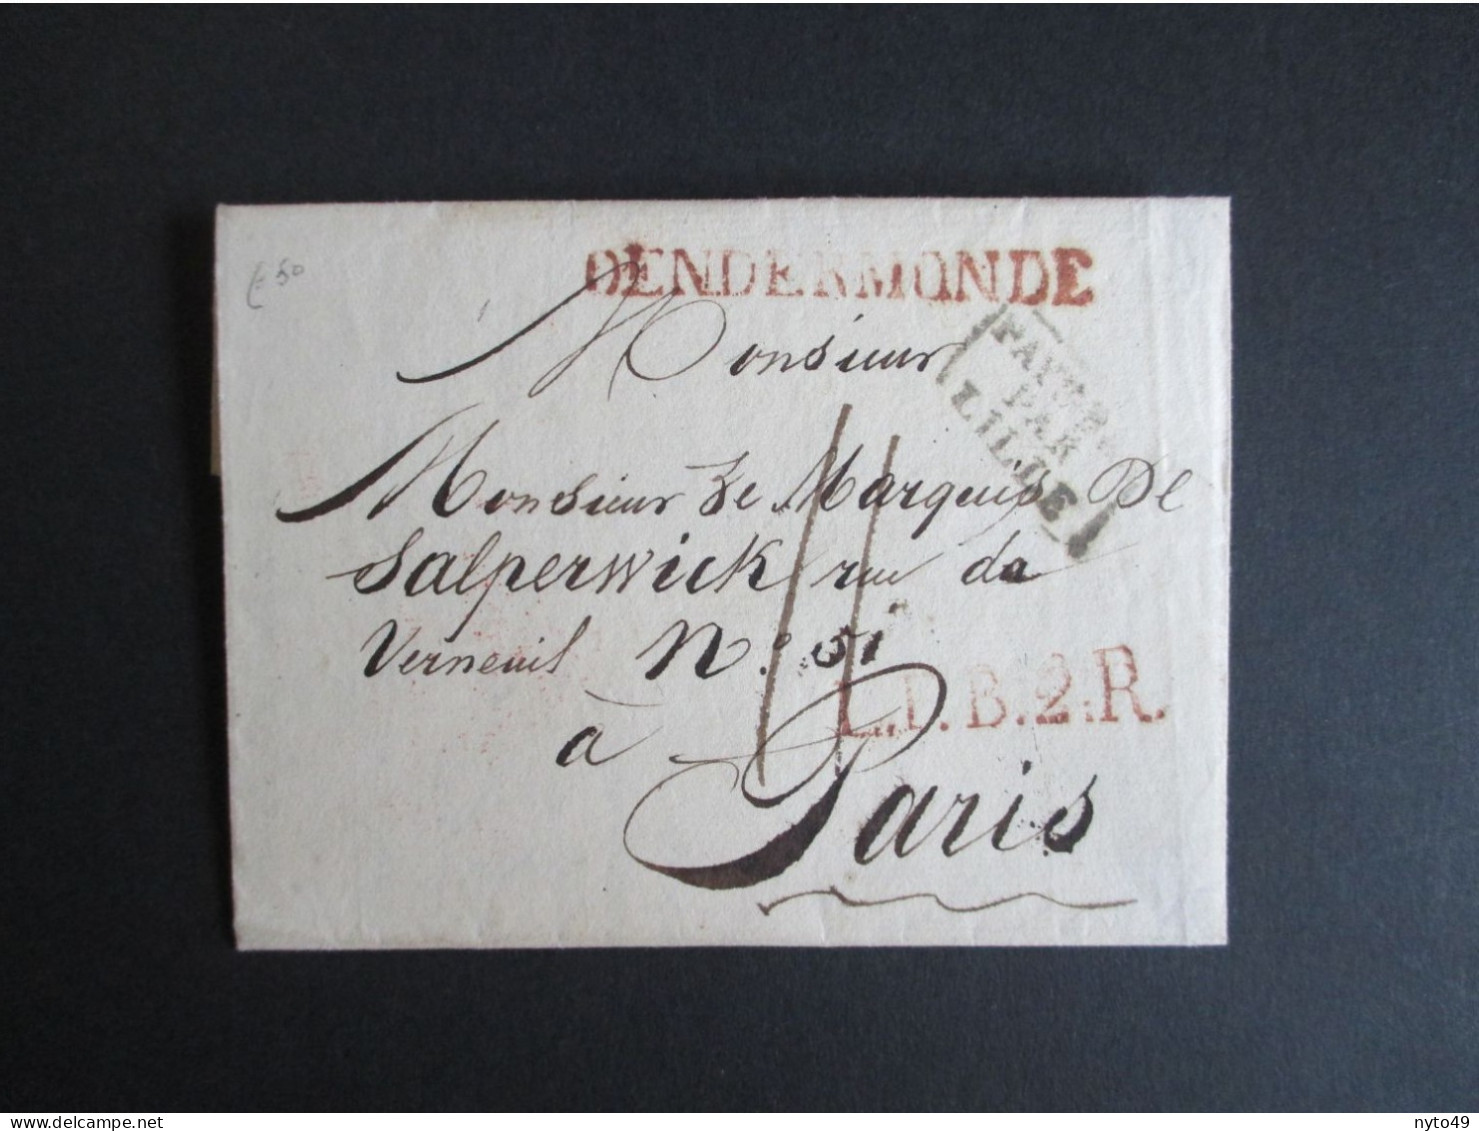 DENDERMONDE
€ 50
Monsieur
PAYS-B
PAR
LILLE
Monsieur Le Marquis De
Salperwick rue de
Verneuil N.° 51
11
L.P.B.2.R.
à
Paris
delcampe.net
nyto49